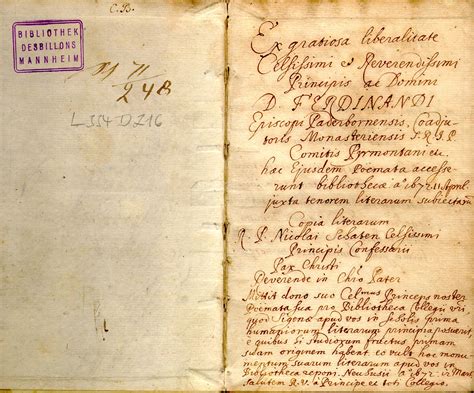 C. B.
BIBLIOTHEK
DESBILLONS
MANNHEIM
248
Ex gratiosa liberalitate
Celsissimi & Reverendissimi
Principis ac Domini
D. FERDINANDI
Episcopi Paderbornensis, coadju
toris Monasteriensis S. R. I. P.
Comitis Pyrmontani etc.
hac Ejusdem Poemata accesse
runt bibliothecæ aº 1672. 11 April.
juxta tenorem literarum subiectam
Copia literarum
R. P. Nicolai Schaten Celsissimi
Principis Confessarii
Pax Christi
Reverende in Chro Pater
Mittit dono suo Celmus Princeps noster
Poemata sua pro Bibliotheca Collegii vri
quod Sigenæ apud vos in Scholis prima
humaniorum literarum principia posuerit
e quibus si studiorum fructus primam
suam originem habent eo vult hoc monu
mentum suarum literarum apud vos in
Bibliotheca reponi. Neuhusii aº 1672. 12 Mart.
Salutem R. V. a Principe et toti Collegio.